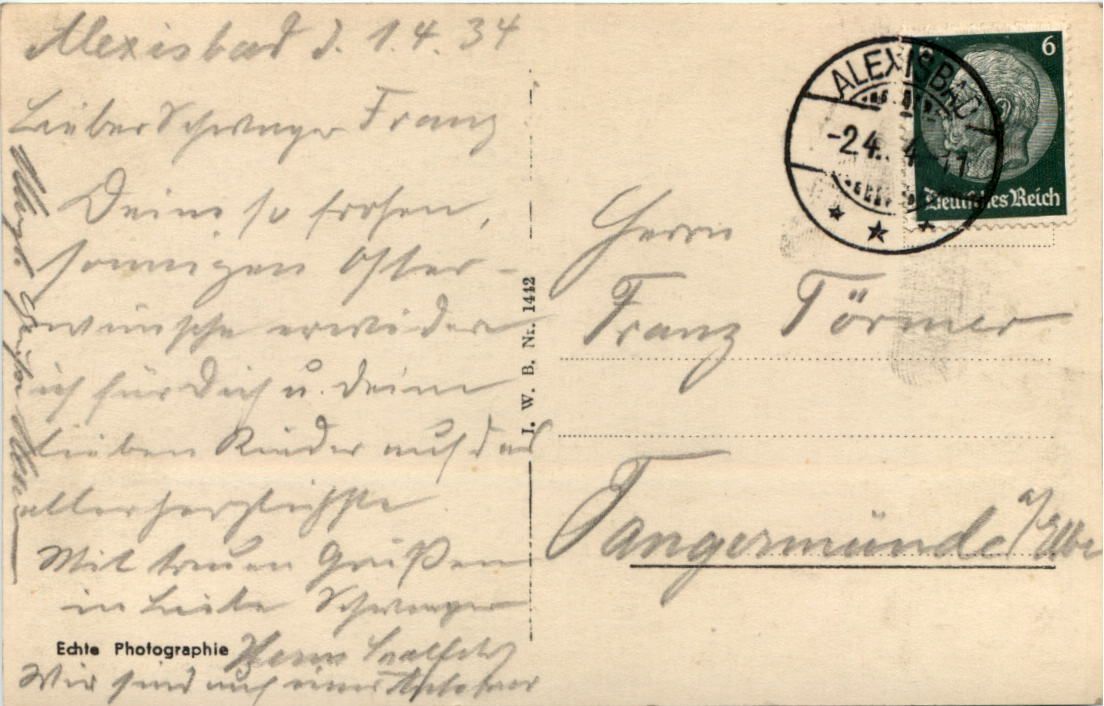 Alexisbad d. 1.4.34
Lieber Schwager Franz
Deine so frohen,
sonnigen Oster-
wünsche erwidere
ich für Dich u. Deine
lieben Kinder auf das
allerherzlichste
Mit treuen Grüßen
in Liebe Schwager
Wir sind auf einer
Echte Photographie
I. W. B. Nr. 1442
ALEXISBAD
-2.4. 4-11
6
Deutsches Reich
Herrn
Franz Törmer
Tangermünde a/Elbe